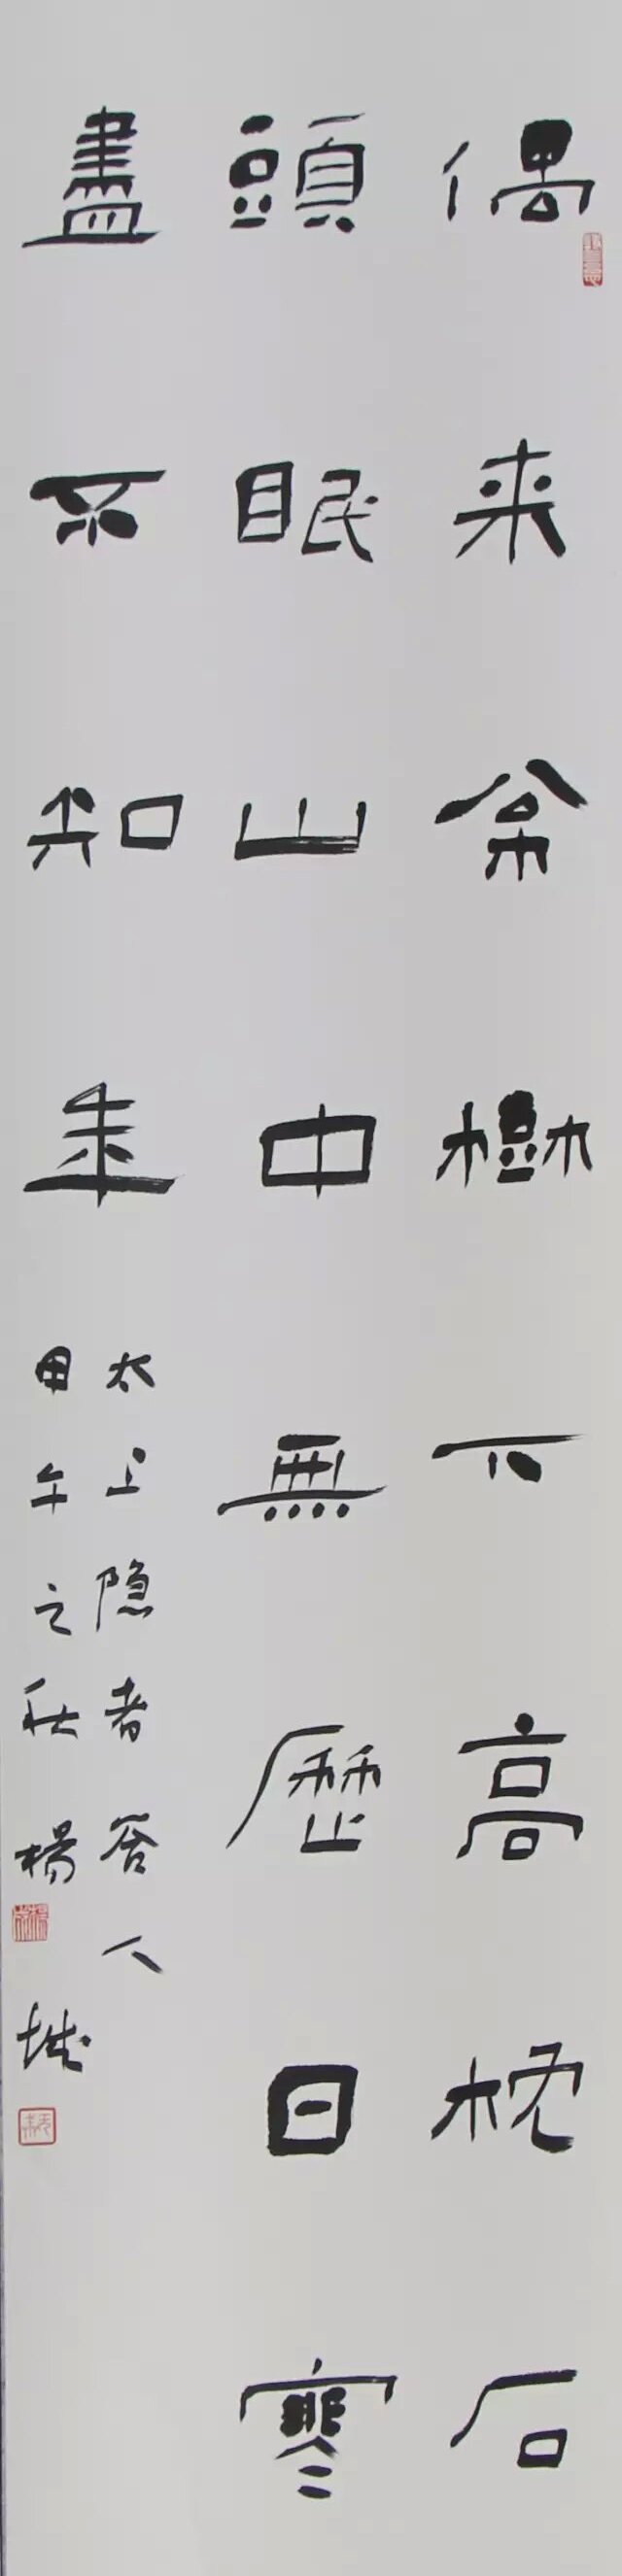 偶来余樹下高枕石
頭眠山中無歷日寒
盡不知年
太上隐者答人
甲午之秋 楊城